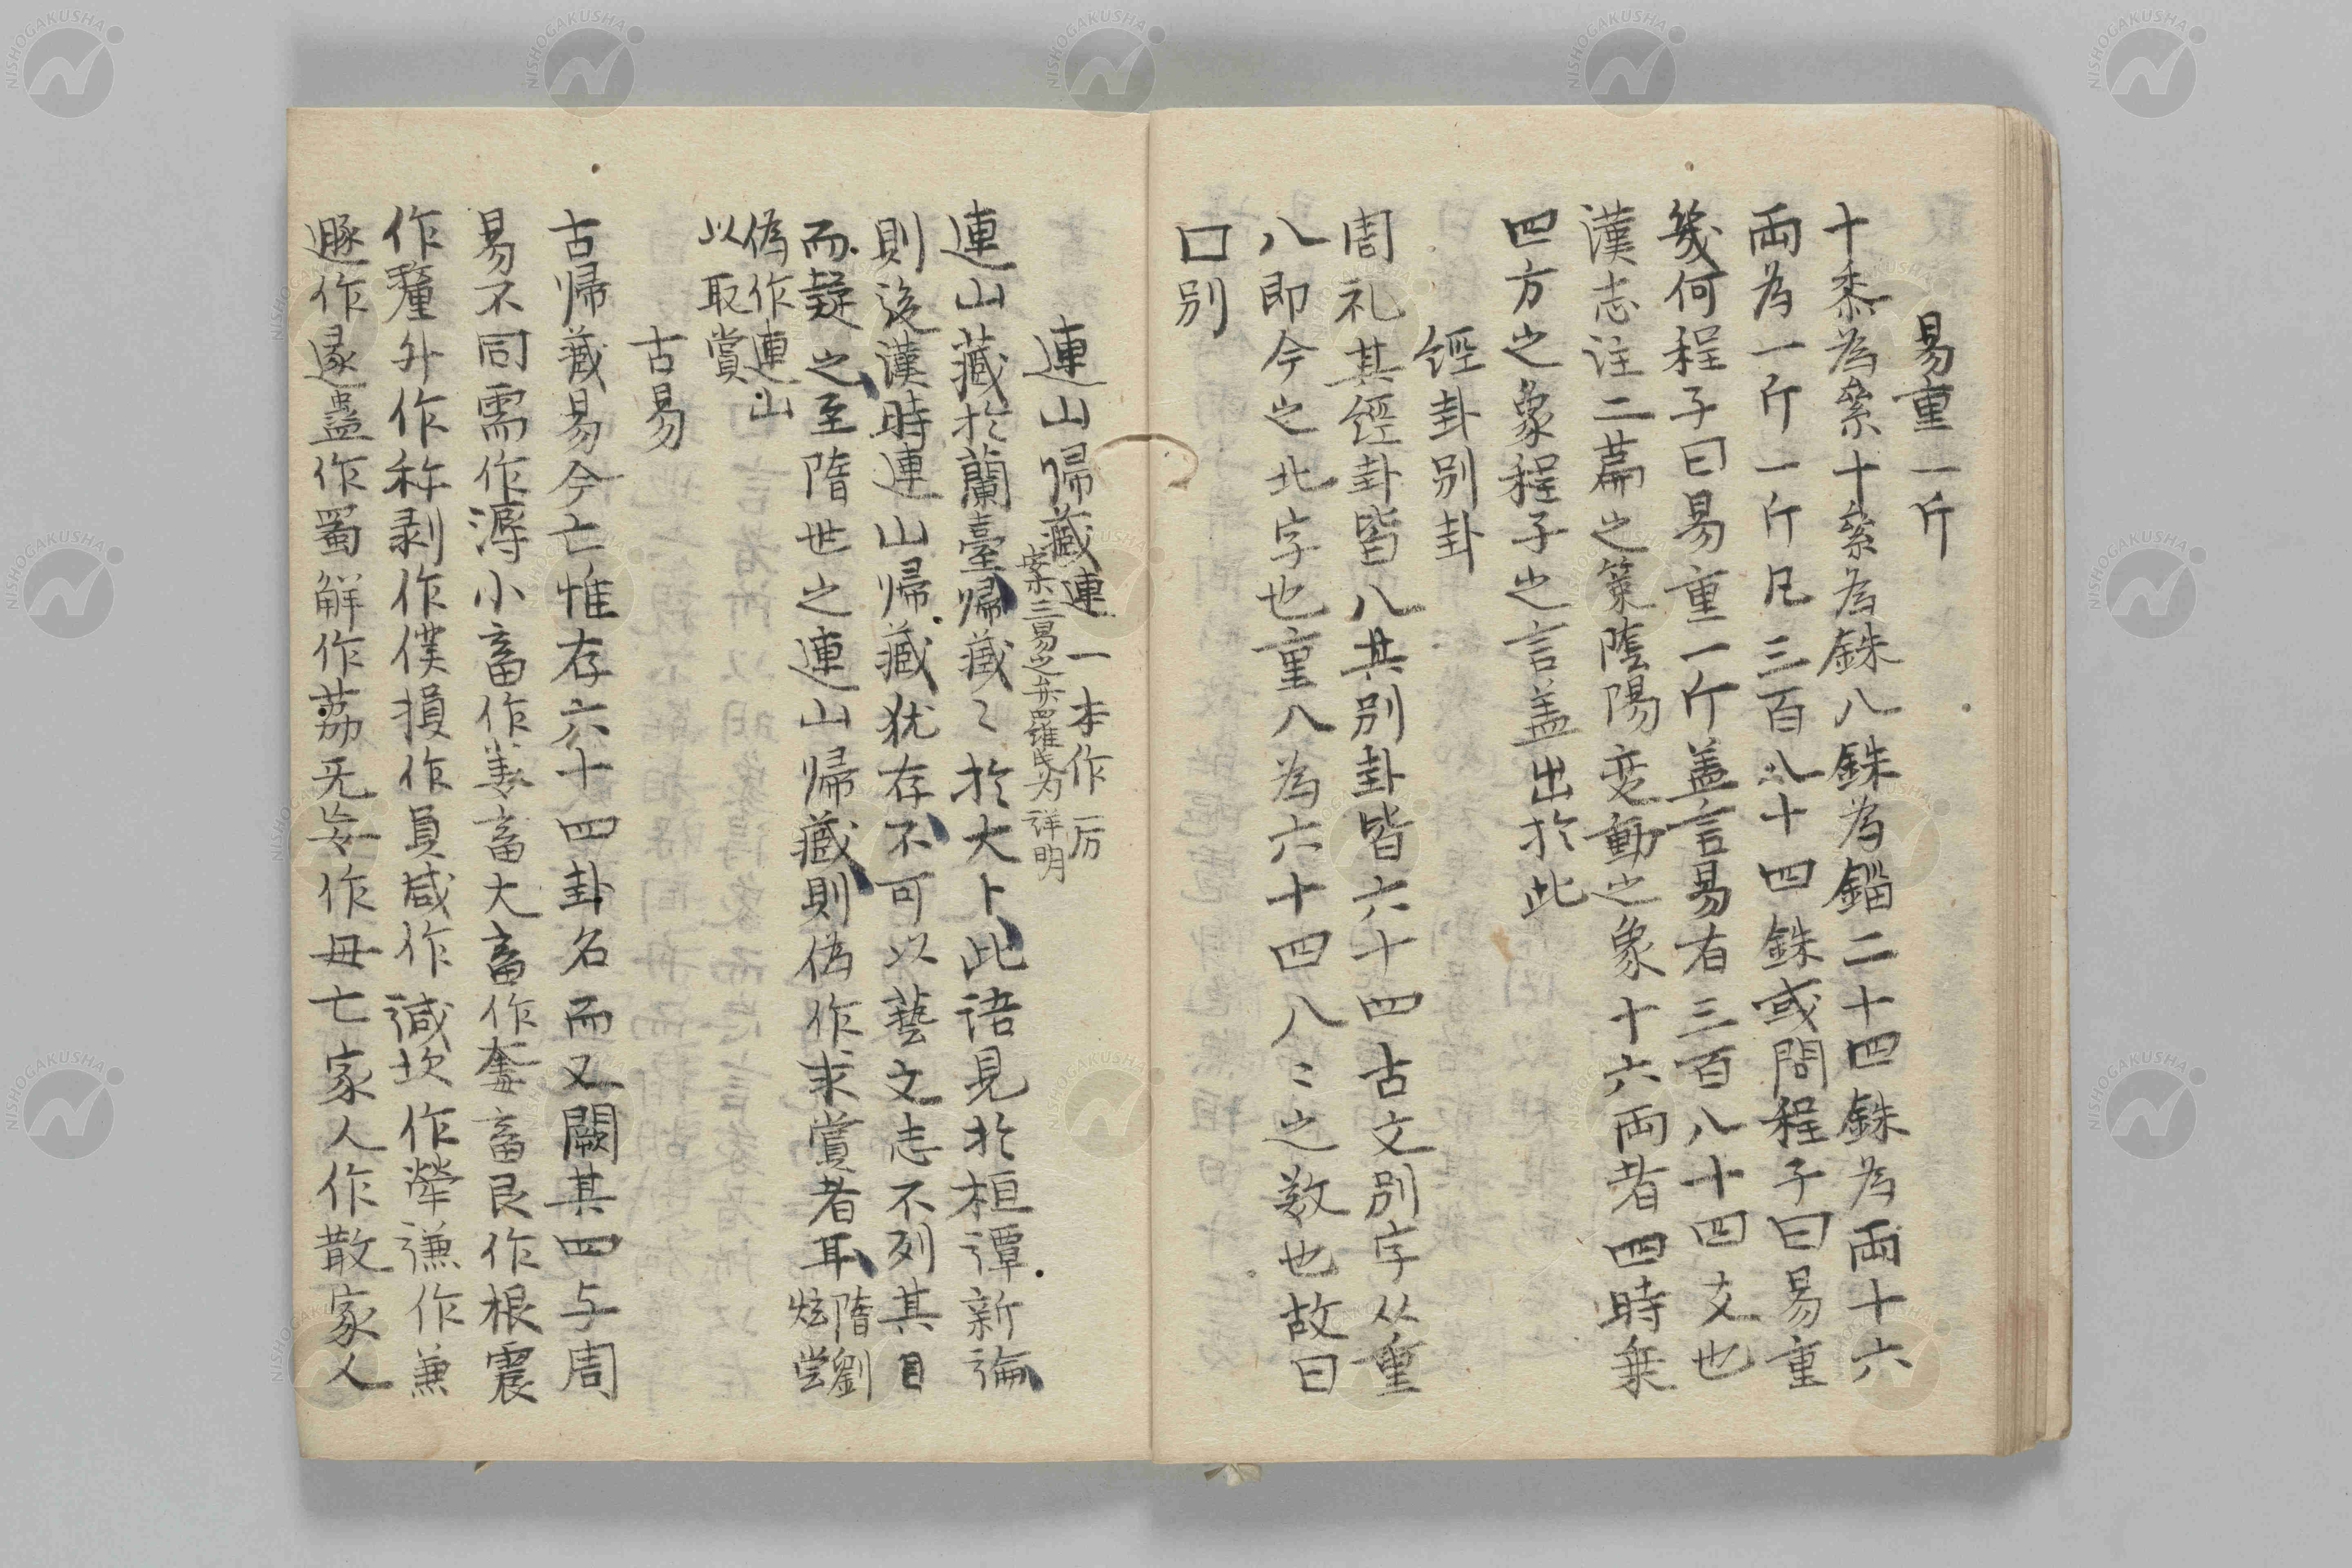 易重一斤
十黍為絫十絫為銖八銖為錙二十四銖為兩十六
兩為一斤一斤凡三百八十四銖或問程子曰易重
幾何程子曰易重一斤盖言易有三百八十四爻也
漢志注二篇之策陰陽変動之象十六兩者四時乗
四方之象程子之言盖出於此
経卦別卦
周礼其経卦皆八其別卦皆六十四古文別字从重
八即今之北字也重八為六十四八〻之数也故曰
口別
連山歸藏連一本作厉
案三易之共羅氏为詳明
連山藏於蘭臺歸藏〻於大卜此語見於桓譚新論
則後漢時連山歸藏犹存不可以藝文志不列其目
而疑之至隋世之連山歸藏則偽作求賞者耳隋劉
炫尝
偽作連山
以取賞
古易
古歸藏易今亡惟存六十四卦名而又闕其四与周
易不同需作溽小畜作𡠗畜大畜作奎畜艮作根震
作釐升作称剥作僕損作員咸作諴坎作犖謙作兼
遯作逯蠱作蜀解作荔无妄作毋亡家人作散家人
NISHOGAKUSHA